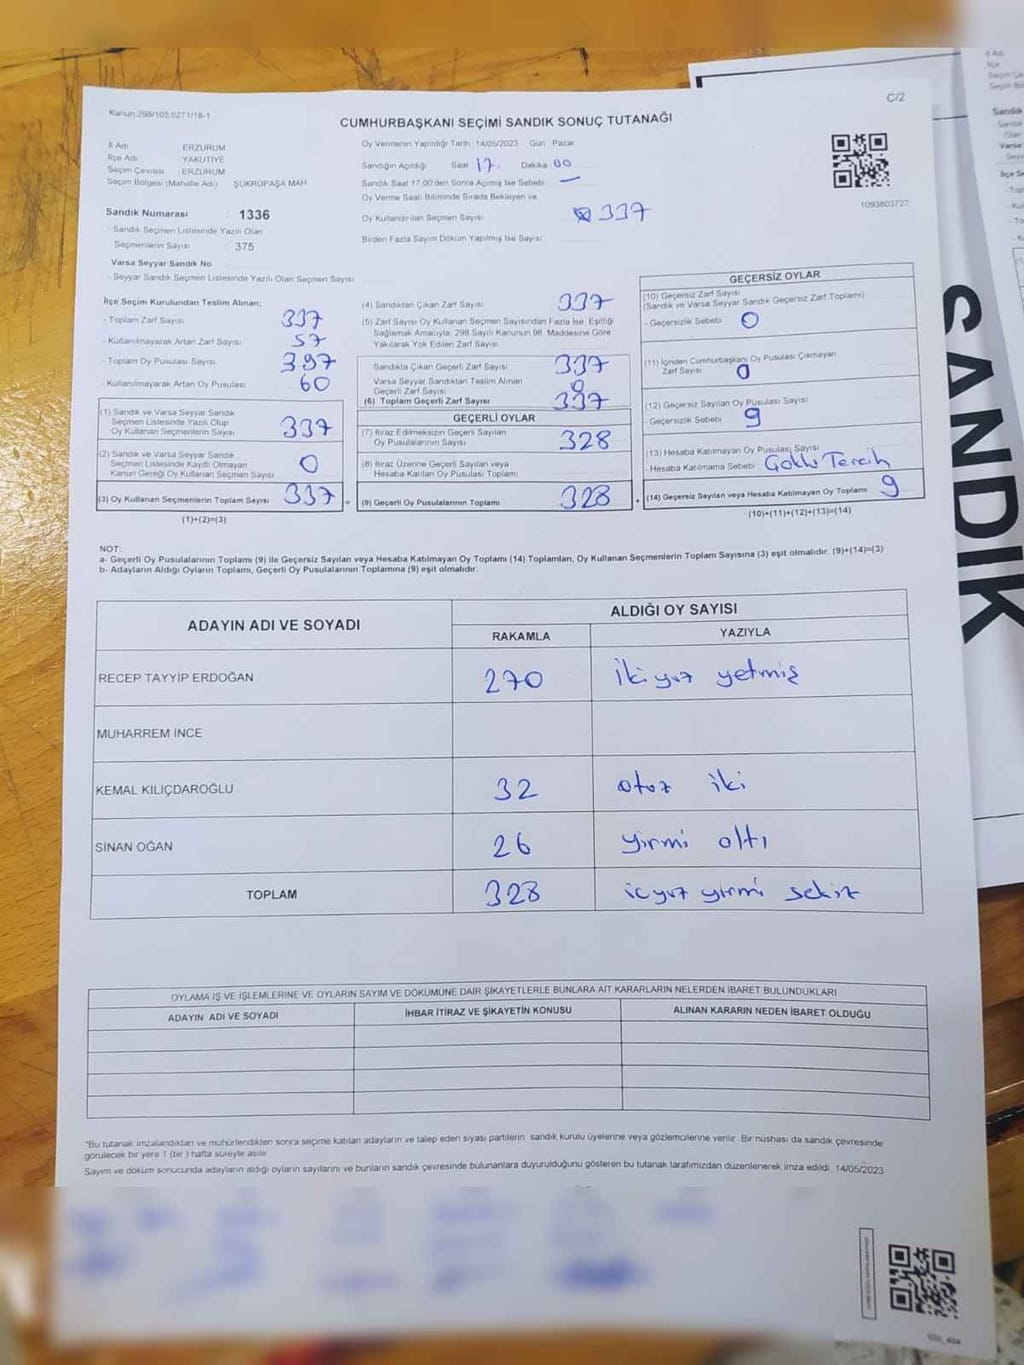 C/2
Kanun:298/105,6271/18-1
CUMHURBAŞKANI SEÇİMİ SANDIK SONUÇ TUTANAĞI
İl Adı ERZURUM
İlçe Adı YAKUTİYE
Seçim Çevresi : ERZURUM
Seçim Bölgesi (Mahalle Adı) ŞÜKRÜPAŞA MAH
Sandık Numarası : 1336
- Sandık Seçmen Listesinde Yazılı Olan
Seçmenlerin Sayısı : 375
Varsa Seyyar Sandık No
- Seyyar Sandık Seçmen Listesinde Yazılı Olan Seçmen Sayısı
Oy Vermenin Yapıldığı Tarih 14/05/2023 Gün Pazar
Sandığın Açıldığı Saat 17. Dakika 00
Sandık Saat 17:00'den Sonra Açılmış İse Sebebi —
Oy Verme Saati Bitiminde Sırada Bekleyen ve
Oy Kullandırılan Seçmen Sayısı 337
Birden Fazla Sayım Döküm Yapılmış İse Sayısı
1093803727
İlçe Seçim Kurulundan Teslim Alınan;
- Toplam Zarf Sayısı 337
- Kullanılmayarak Artan Zarf Sayısı 57
- Toplam Oy Pusulası Sayısı 397
- Kullanılmayarak Artan Oy Pusulası 60
(1) Sandık ve Varsa Seyyar Sandık
Seçmen Listesinde Yazılı Olup
Oy Kullanan Seçmenlerin Sayısı 337
(2) Sandık ve Varsa Seyyar Sandık
Seçmen Listesinde Kayıtlı Olmayan
Kanun Gereği Oy Kullanan Seçmen Sayısı 0
(3) Oy Kullanan Seçmenlerin Toplam Sayısı 337 =
(1)+(2)=(3)
(4) Sandıktan Çıkan Zarf Sayısı 337
(5) Zarf Sayısı Oy Kullanan Seçmen Sayısından Fazla İse, Eşitliği
Sağlamak Amacıyla, 298 Sayılı Kanunun 98. Maddesine Göre
Yakılarak Yok Edilen Zarf Sayısı
Sandıkta Çıkan Geçerli Zarf Sayısı 337
Varsa Seyyar Sandıktan Teslim Alınan
Geçerli Zarf Sayısı 0
(6) Toplam Geçerli Zarf Sayısı 337
GEÇERLİ OYLAR
(7) İtiraz Edilmeksizin Geçerli Sayılan
Oy Pusulalarının Sayısı 328
(8) İtiraz Üzerine Geçerli Sayılan veya
Hesaba Katılan Oy Pusulası Toplamı
(9) Geçerli Oy Pusulalarının Toplamı 328 +
GEÇERSİZ OYLAR
(10) Geçersiz Zarf Sayısı
(Sandık ve Varsa Seyyar Sandık Geçersiz Zarf Toplamı)
- Geçersizlik Sebebi 0
(11) İçinden Cumhurbaşkanı Oy Pusulası Çıkmayan
Zarf Sayısı 0
(12) Geçersiz Sayılan Oy Pusulası Sayısı
- Geçersizlik Sebebi 9
(13) Hesaba Katılmayan Oy Pusulası Sayısı
- Hesaba Katılmama Sebebi Tercih
(14) Geçersiz Sayılan veya Hesaba Katılmayan Oy Toplamı 9
(10)+(11)+(12)+(13)=(14)
NOT:
a- Geçerli Oy Pusulalarının Toplamı (9) ile Geçersiz Sayılan veya Hesaba Katılmayan Oy Toplamı (14) Toplamları, Oy Kullanan Seçmenlerin Toplam Sayısına (3) eşit olmalıdır. (9)+(14)=(3)
b- Adayların Aldığı Oyların Toplamı, Geçerli Oy Pusulalarının Toplamına (9) eşit olmalıdır.
ADAYIN ADI VE SOYADI
ALDIĞI OY SAYISI
RAKAMLA YAZIYLA
RECEP TAYYİP ERDOĞAN 270 İkiyuz yetmiş
MUHARREM İNCE
KEMAL KILIÇDAROĞLU 32 otuz iki
SİNAN OĞAN 26 yirmi altı
TOPLAM 328 üçyüz yirmi sekiz
OYLAMA İŞ VE İŞLEMLERİNE VE OYLARIN SAYIM VE DÖKÜMÜNE DAİR ŞİKAYETLERLE BUNLARA AİT KARARLARIN NELERDEN İBARET BULUNDUKLARI
ADAYIN ADI VE SOYADI İHBAR İTİRAZ VE ŞİKAYETİN KONUSU ALINAN KARARIN NEDEN İBARET OLDUĞU
*Bu tutanak imzalandıktan ve mühürlendikten sonra seçime katılan adayların ve talep eden siyasi partilerin sandık kurulu üyelerine veya gözlemcilerine verilir. Bir nüshası da sandık çevresinde
görülecek bir yere 1 (bir ) hafta süreyle asılır.
Sayım ve döküm sonucunda adayların aldığı oyların sayılarını ve bunların sandık çevresinde bulunanlara duyurulduğunu gösteren bu tutanak tarafımızdan düzenlenerek imza edildi. 14/05/2023
SANDIK